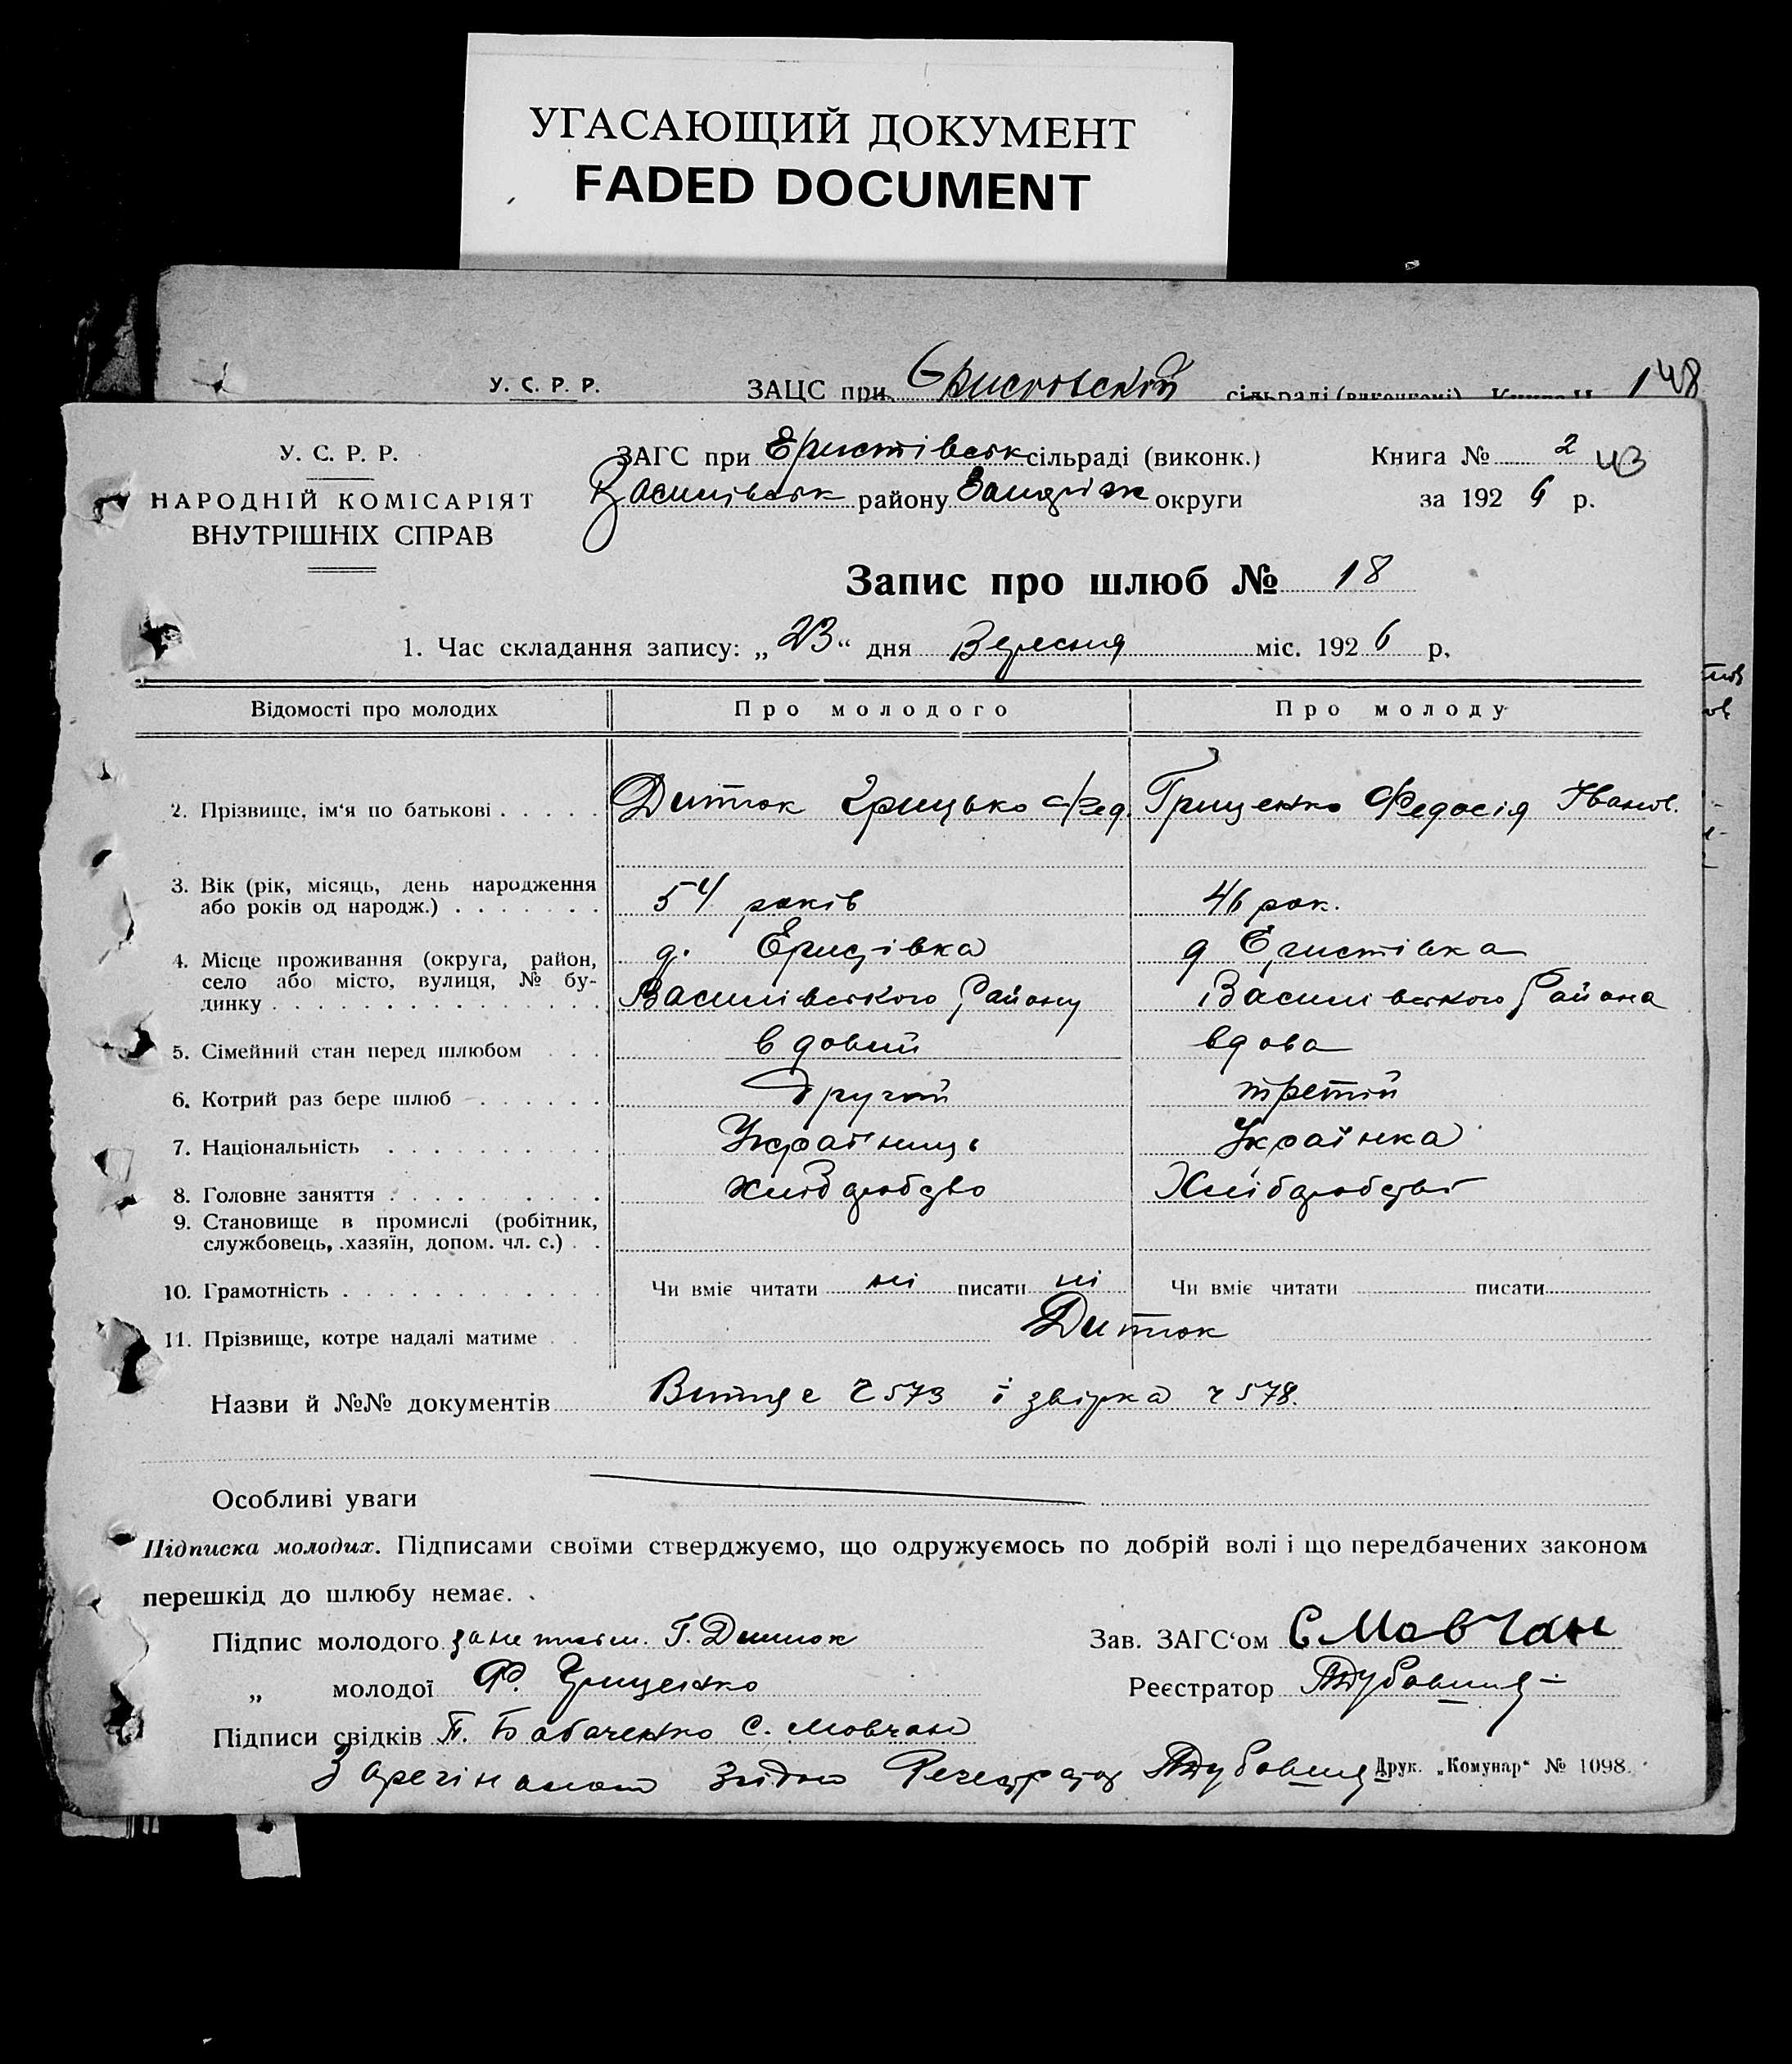 УГАСАЮЩИЙ ДОКУМЕНТ
FADED DOCUMENT
У. С. Р. Р. ЗАЦС при сільраді (виконкомі) Книга 148
У. С. Р. Р.
НАРОДНІЙ КОМІСАРІЯТ
ВНУТРІШНІХ СПРАВ
ЗАГС при Еристівськ сільраді (виконк.) Книга № 2 43
Василівськ району Запоріж округи за 1926 р.
Запис про шлюб № 18
1. Час складання запису: „23“ дня Вересня міс. 1926 р.
Відомості про молодих Про молодого Про молоду
2. Прізвище, ім'я по батькові Дитюк Грицько Фед. Грищенко Федосія Іванов.
3. Вік (рік, місяць, день народження
або років од народж.) 54 років 46 рок.
4. Місце проживання (округа, район, д. Еристівка д Еристівка
село або місто, вулиця, № бу-
динку Василівського Району Василівського Района
5. Сімейний стан перед шлюбом вдовий вдова
6. Котрий раз бере шлюб другий третій
7. Національність Українець Українка
8. Головне заняття
9. Становище в промислі (робітник,
службовець, хазяїн, допом. чл. с.)
10. Грамотність Чи вміє читати ні писати ні Чи вміє читати писати
11. Прізвище, котре надалі матиме Дитюк
Назви й №№ документів 573 і звірка ч 578.
Особливі уваги
Підписка молодих. Підписами своїми стверджуємо, що одружуємось по добрій волі і що передбачених законом
перешкід до шлюбу немає.
Підпис молодого за неписьм. Г. Дитюк Зав. ЗАГС'ом С Мовчан
„ молодої Ф. Грищенко Реєстратор
Підписи свідків П. Бабаченко С. Мовчан
З оригіналом згідно Реєстратор Друк. „Комунар“ № 1098.